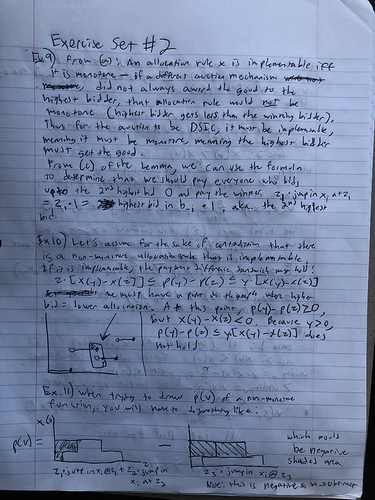 Exercise Set #2
Ex 9) From (a): An allocation rule x is implementable iff
it is monotone - if a different auction mechanism
did not always award the good to the
highest bidder, that allocation rule would not be
monotone (highest bidder gets less than the winning bidder).
Thus for the auction to be DSIC, it must be implementable,
meaning it must be monotone, meaning the highest bidder
must get the good.
From (c) of the Lemma, we can use the formula
to determine that we should pay everyone who bids
up to the 2nd highest bid 0 and pay the winner z₁ · jump in xᵢ at z₁
= z₁ · 1 = highest bid in b₋ᵢ · 1, aka. the 2nd highest
bid.
Ex 10) Let's assume for the sake of contradiction that there
is a non-monotone allocation rule that is implementable.
If it is implementable, the payment difference sandwich must hold:
z · [x(y) - x(z)] ≤ p(y) - p(z) ≤ y · [x(y) - x(z)]
we must have a point where higher
bid = lower allocation. At this point, p(y) - p(z) ≥ 0,
but x(y) - x(z) ≤ 0. Because y > 0,
p(y) - p(z) ≤ y[x(y) - x(z)] does
not hold.
Ex. 11) When trying to draw p(v) of a non-monotone
function, you will have to do something like:
x(z)
p(v) = -
which would
be negative
shaded area
z₁ · jump in xᵢ @ z₁ + z₂ · jump in xᵢ at z₂
z₃ · jump in xᵢ @ z₃
Note: this is negative so we subtract